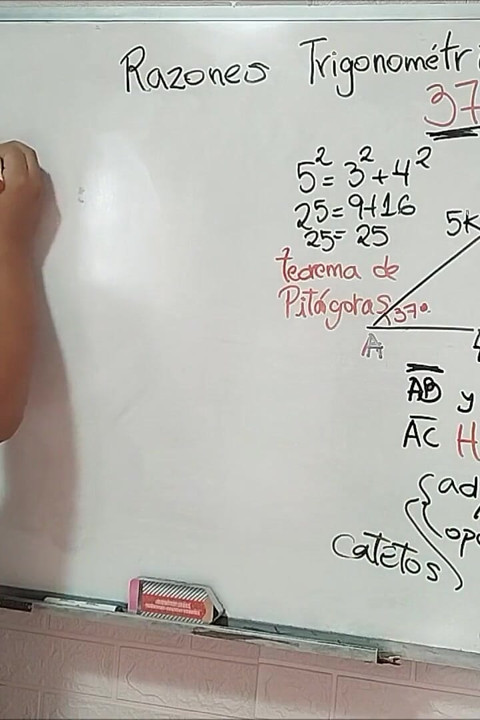 Razones Trigonométri
37
5² = 3² + 4²
25 = 9 + 16
25 = 25
5K
teorema de
Pitágoras
37°
A
4
AB y
AC H
ad
opo
Catetos